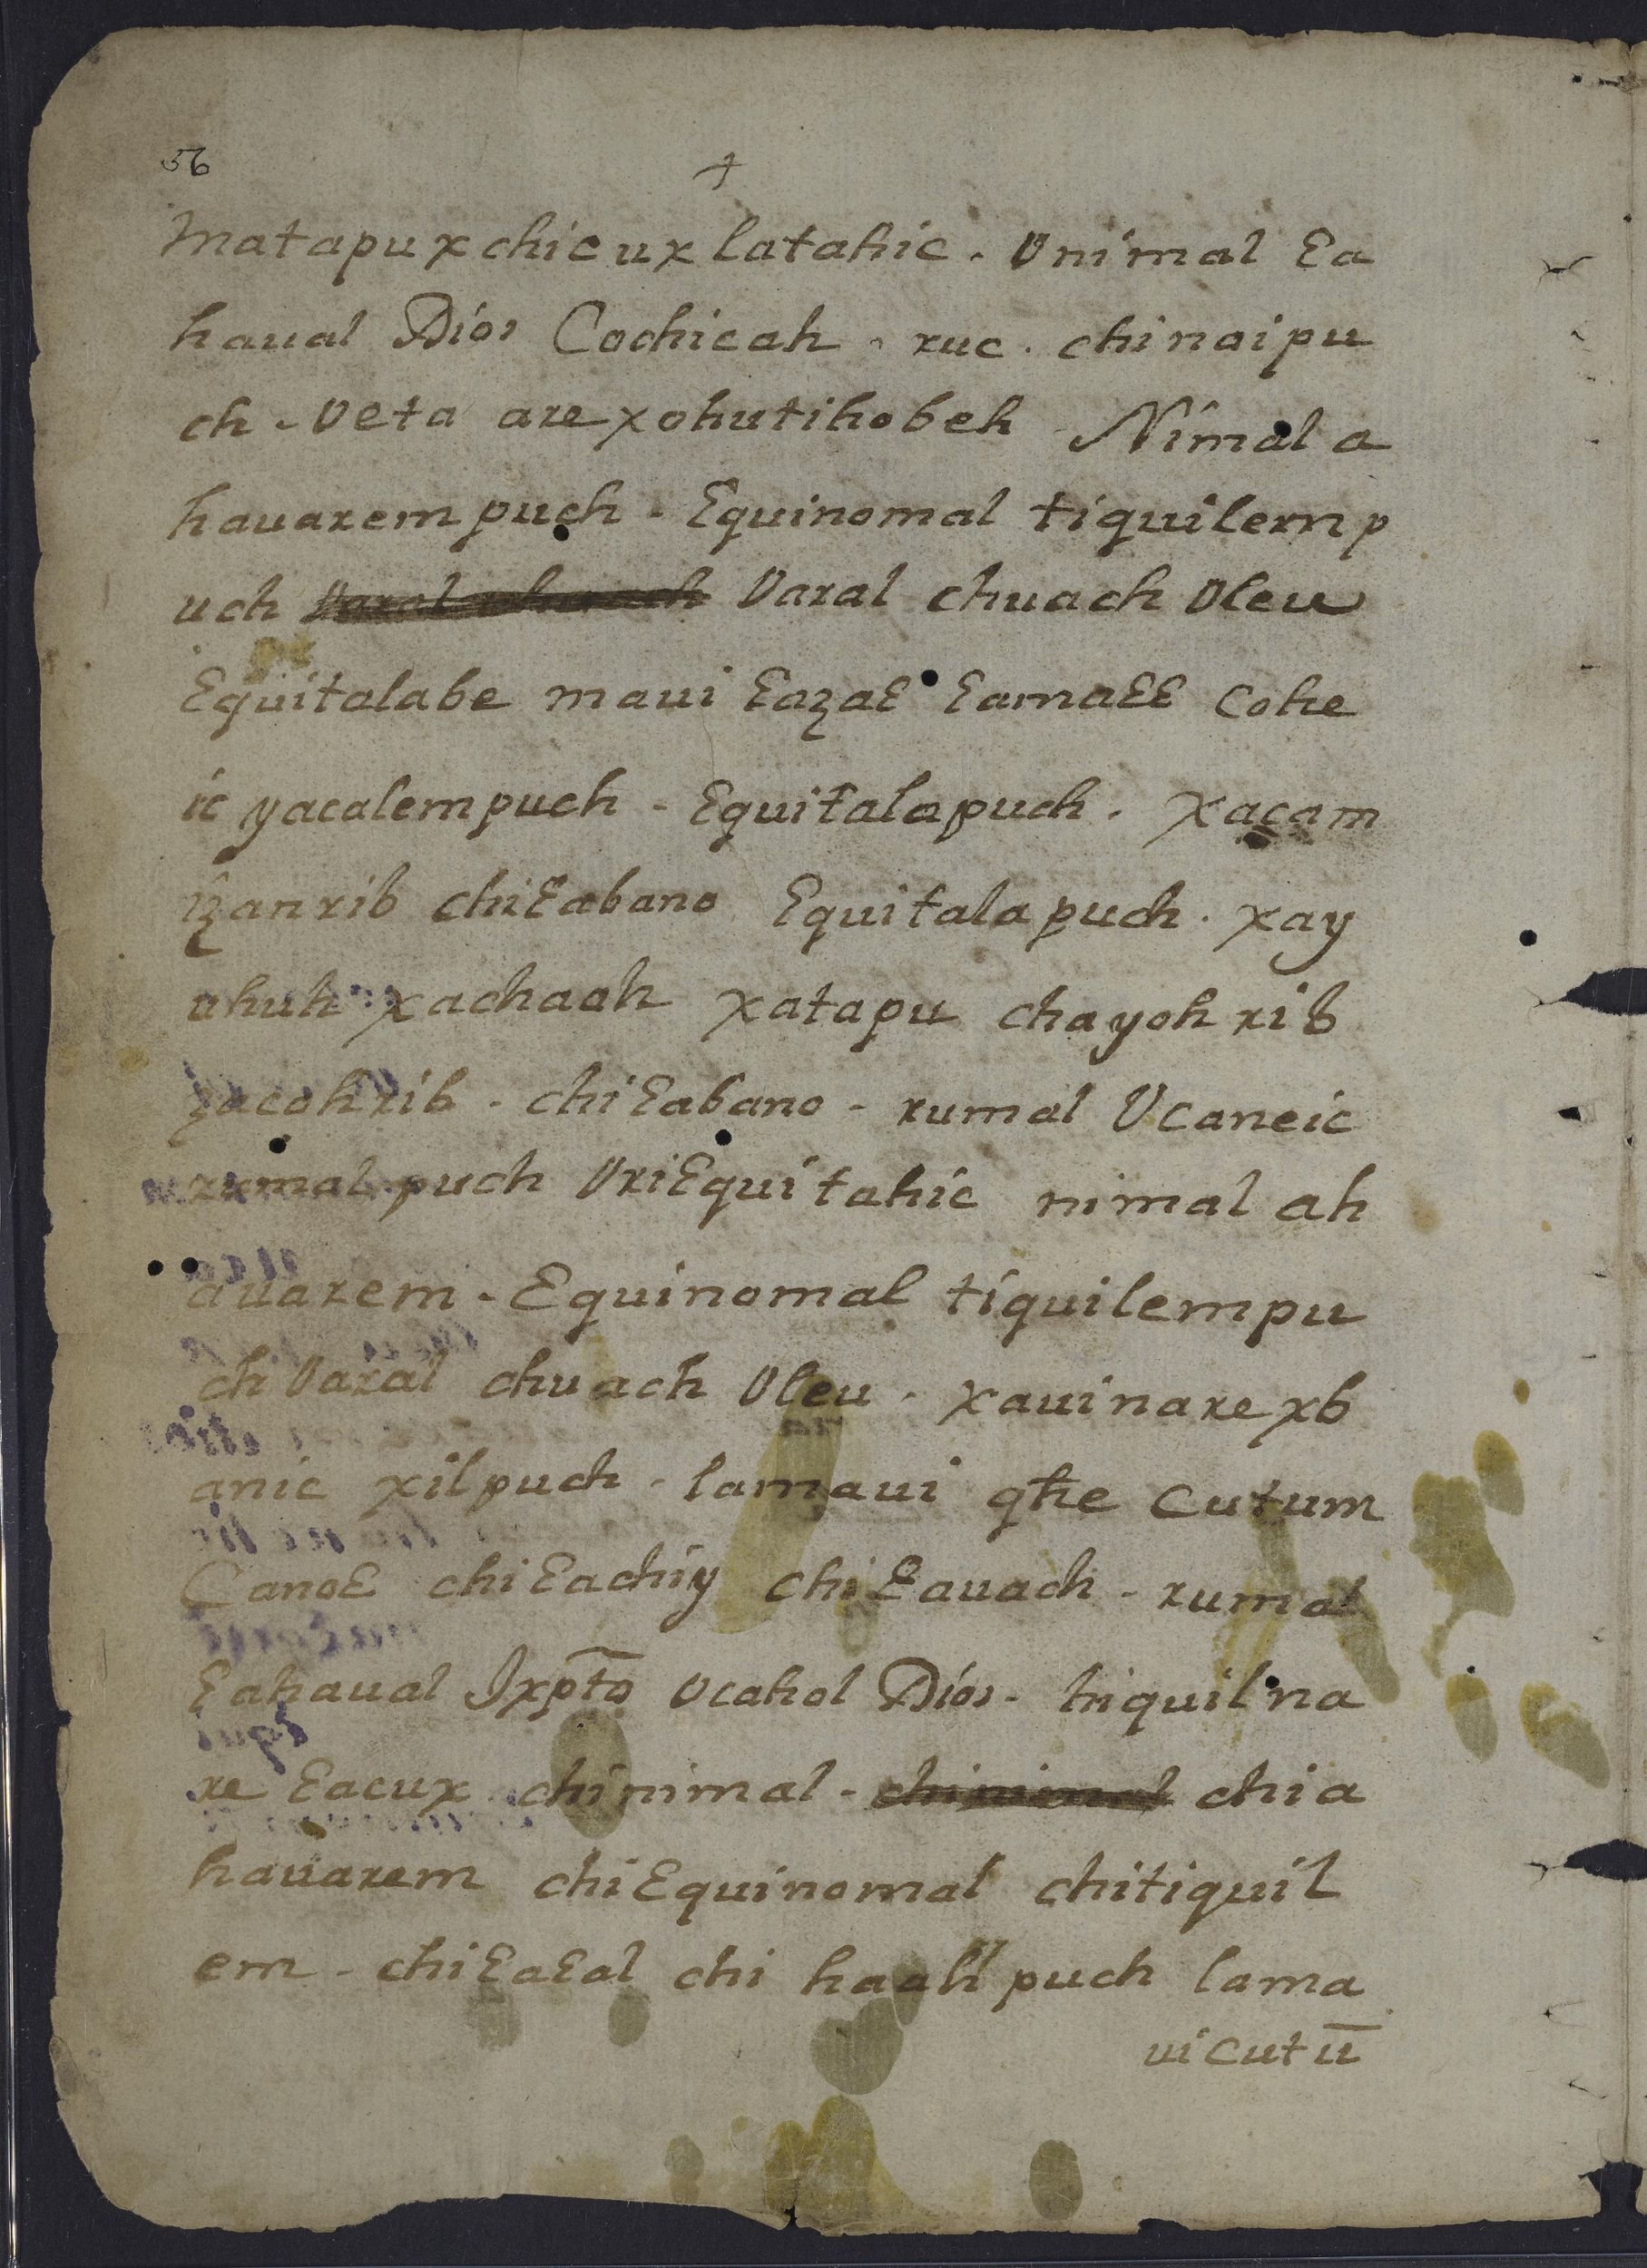 56
+
matapuxchicuxlatahic. Vnimal Ɛa
haual Dios Cochicah. ruc. chinaipu
ch. veta are xohutihobeh Nimal a
hauarem puch. Ɛquinomal tiquilem p
uch Varal chuach Varal chuach Vleu
Ɛquitalabe maui ƐazaƐ ƐamaƐƐ Cohe
ic yacalem puch. Ɛquitalapuch. xacam
izanrib chiƐabano Ɛquitalapuch. xay
uhuh xachaah xatapu chayoh rib
zacohrib. chiƐabano. rumal Vcaneic
rumal puch VriƐquitahic nimal ah
auarem. Ɛquinomal tiquilempu
ch Varal chuach Vleu. xauinare xb
anic xilpuch. lamaui qhe cutum
CanoƐ chiƐachiy chiƐauach. rumal
Ɛahaual Jxpto Vcahol Dios. hiquilna
re Ɛacux chinimal. chinimal chia
hauarem chiƐquinomal chitiquil
em. chiƐaƐal chi haah puch lama
ui cutū